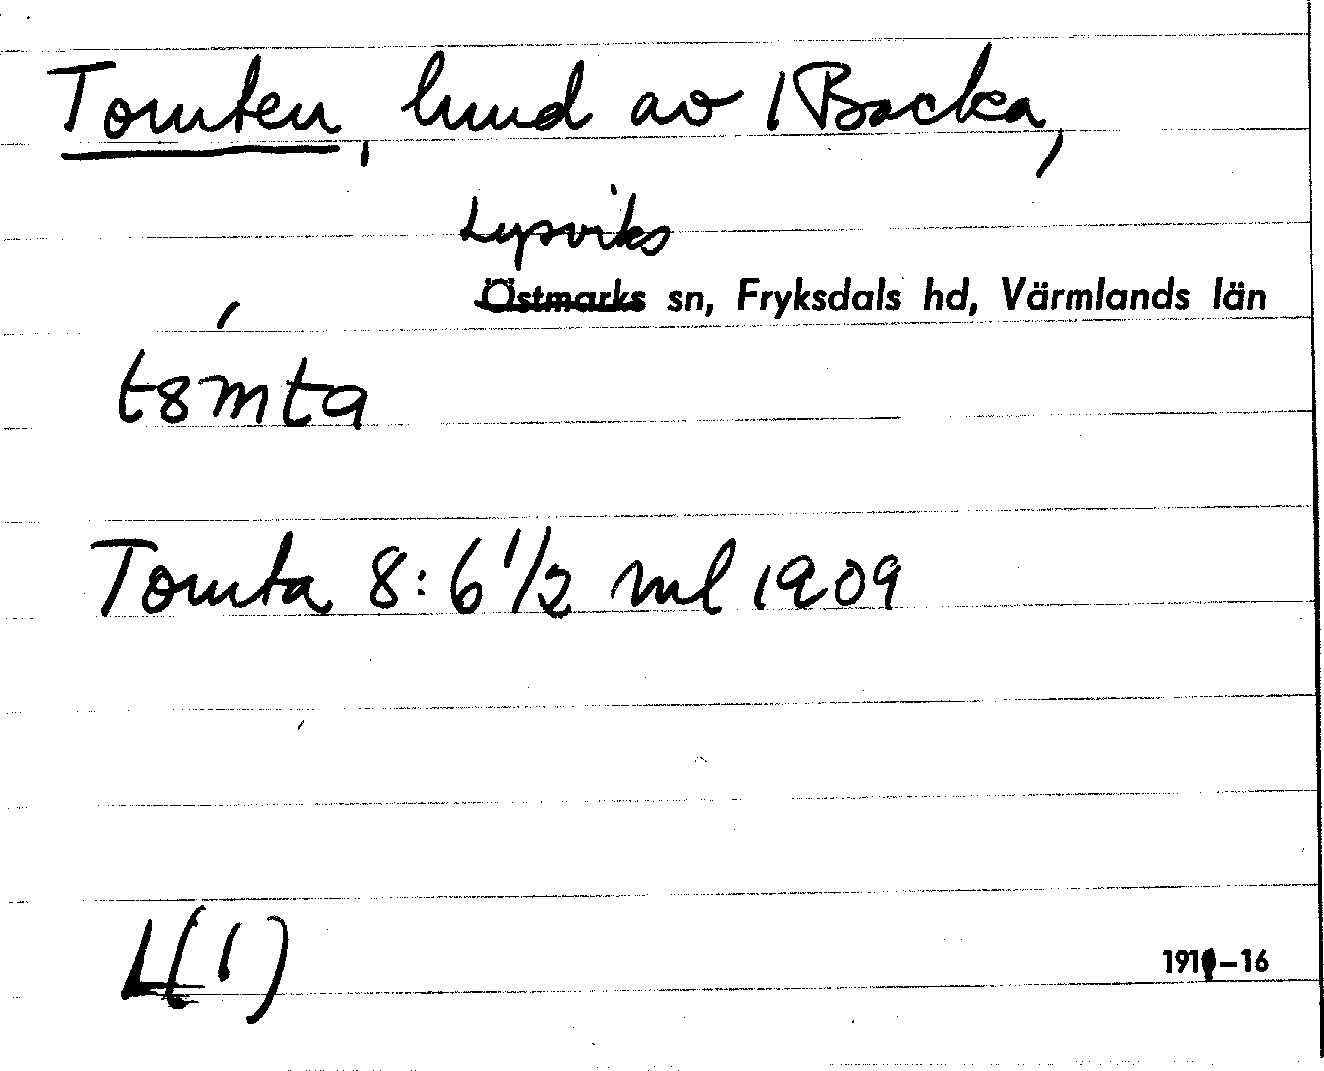 Tomten, hmd av 1 Backa,
Lysviks
Östmarks sn, Fryksdals hd, Värmlands län
Tomta 8:6 1/2 ml 1909
L(1)
-16